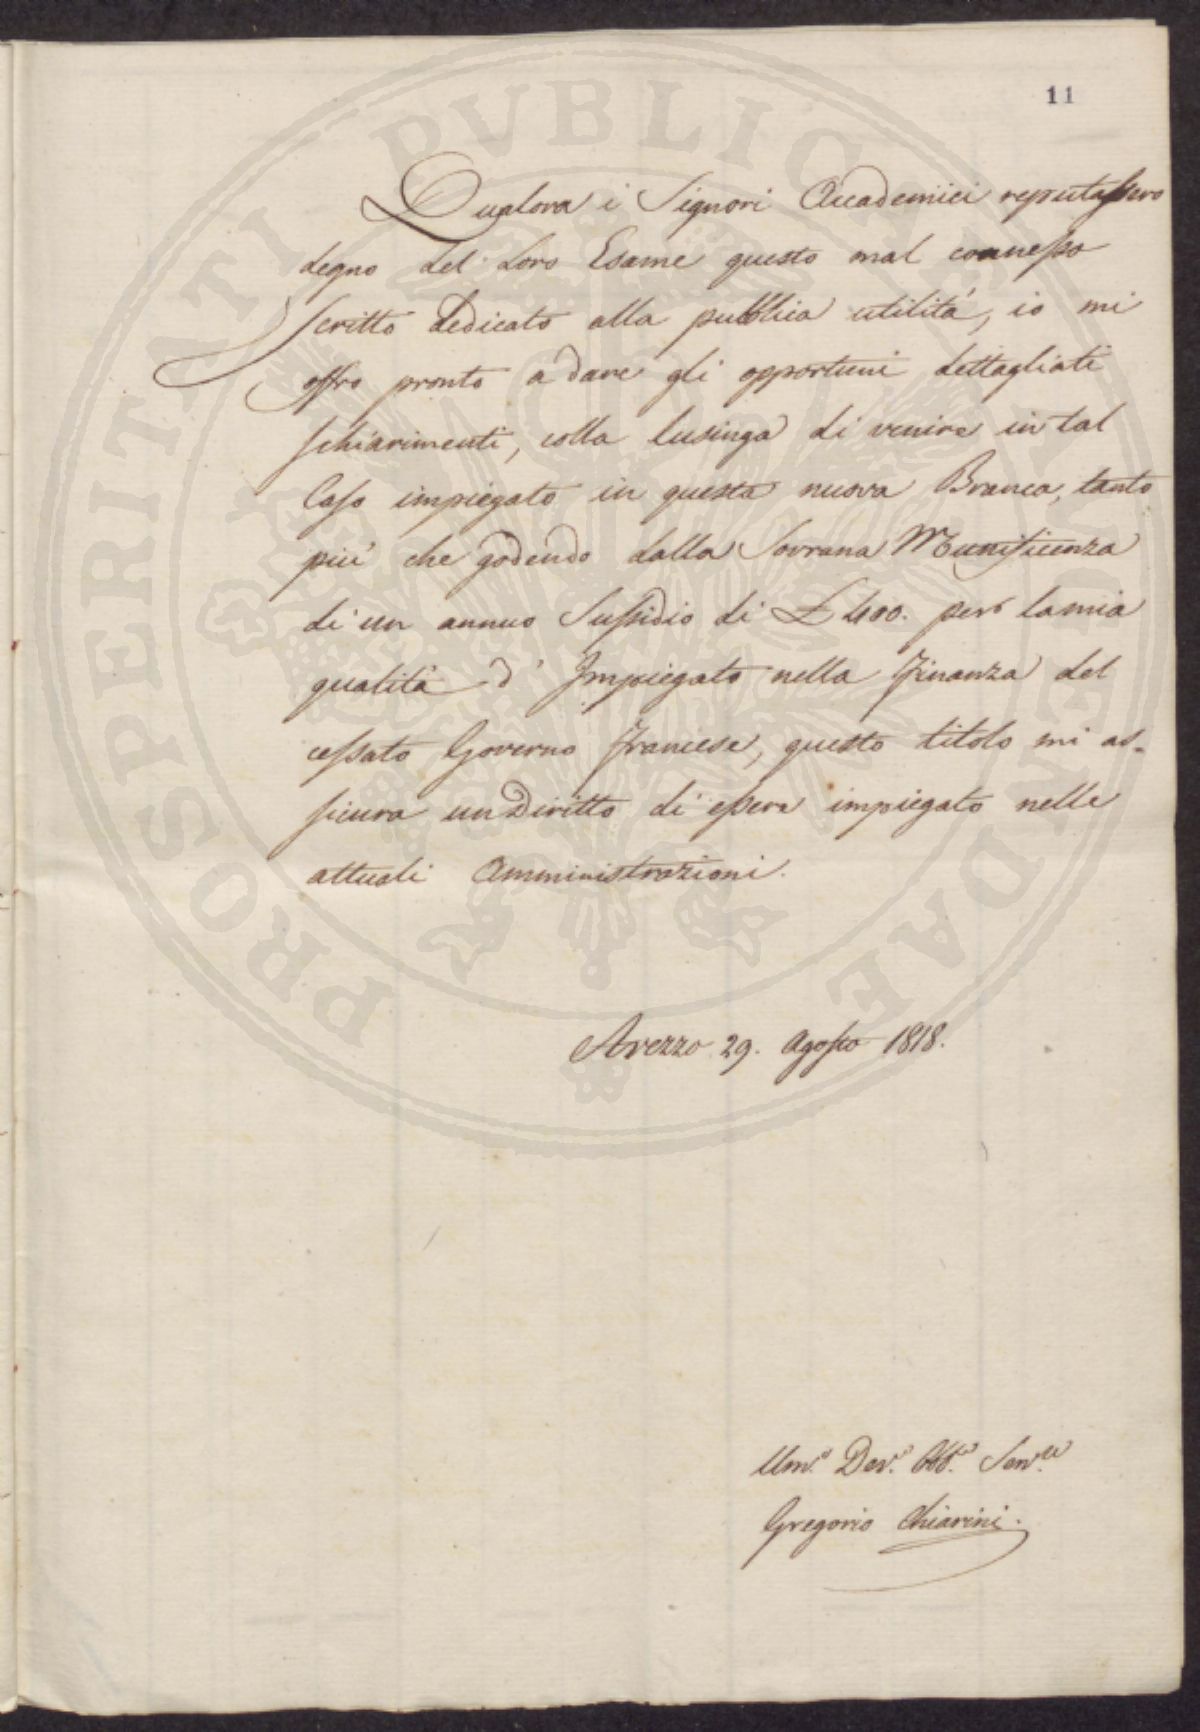 11
Qualora i Signori Accademici reputassero
degno del Loro Esame questo mal connesso
scritto dedicato alla pubblica utilità, io mi
offro pronto a dare gli opportuni dettagliati
schiarimenti, colla lusinga di venire in tal
Caso impiegato in questa nuova Branca, tanto
più che godendo dalla Sovrana Munificenza
di un annuo Sussidio di £ 400. per la mia
qualità d' Impiegato nella Finanza del
cessato Governo Francese, questo titolo mi as=
sicura un Diritto di essere impiegato nelle
attuali Amministrazioni.
Arezzo 29. Agosto 1818.
Um.º Dev.º Obb.º Serv.re
Gregorio Chiarini.
PROSPERITATI PUBLICAE AUGENDAE